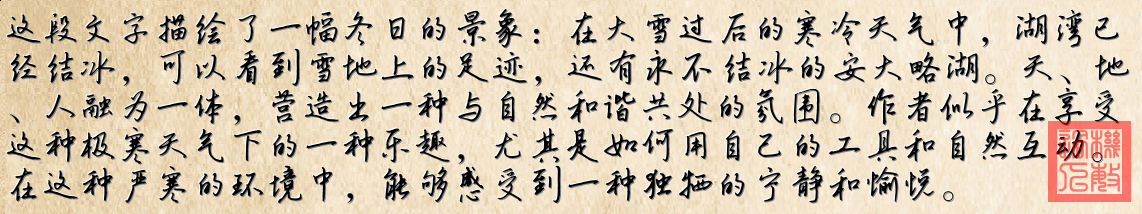 这段文字描绘了一幅冬日的景象：在大雪过后的寒冷天气中，湖湾已
经结冰，可以看到雪地上的足迹，还有永不结冰的安大略湖。天、地
、人融为一体，营造出一种与自然和谐共处的氛围。作者似乎在享受
这种极寒天气下的一种乐趣，尤其是如何用自己的工具和自然互动。
在这种严寒的环境中，能够感受到一种独特的宁静和愉悦。